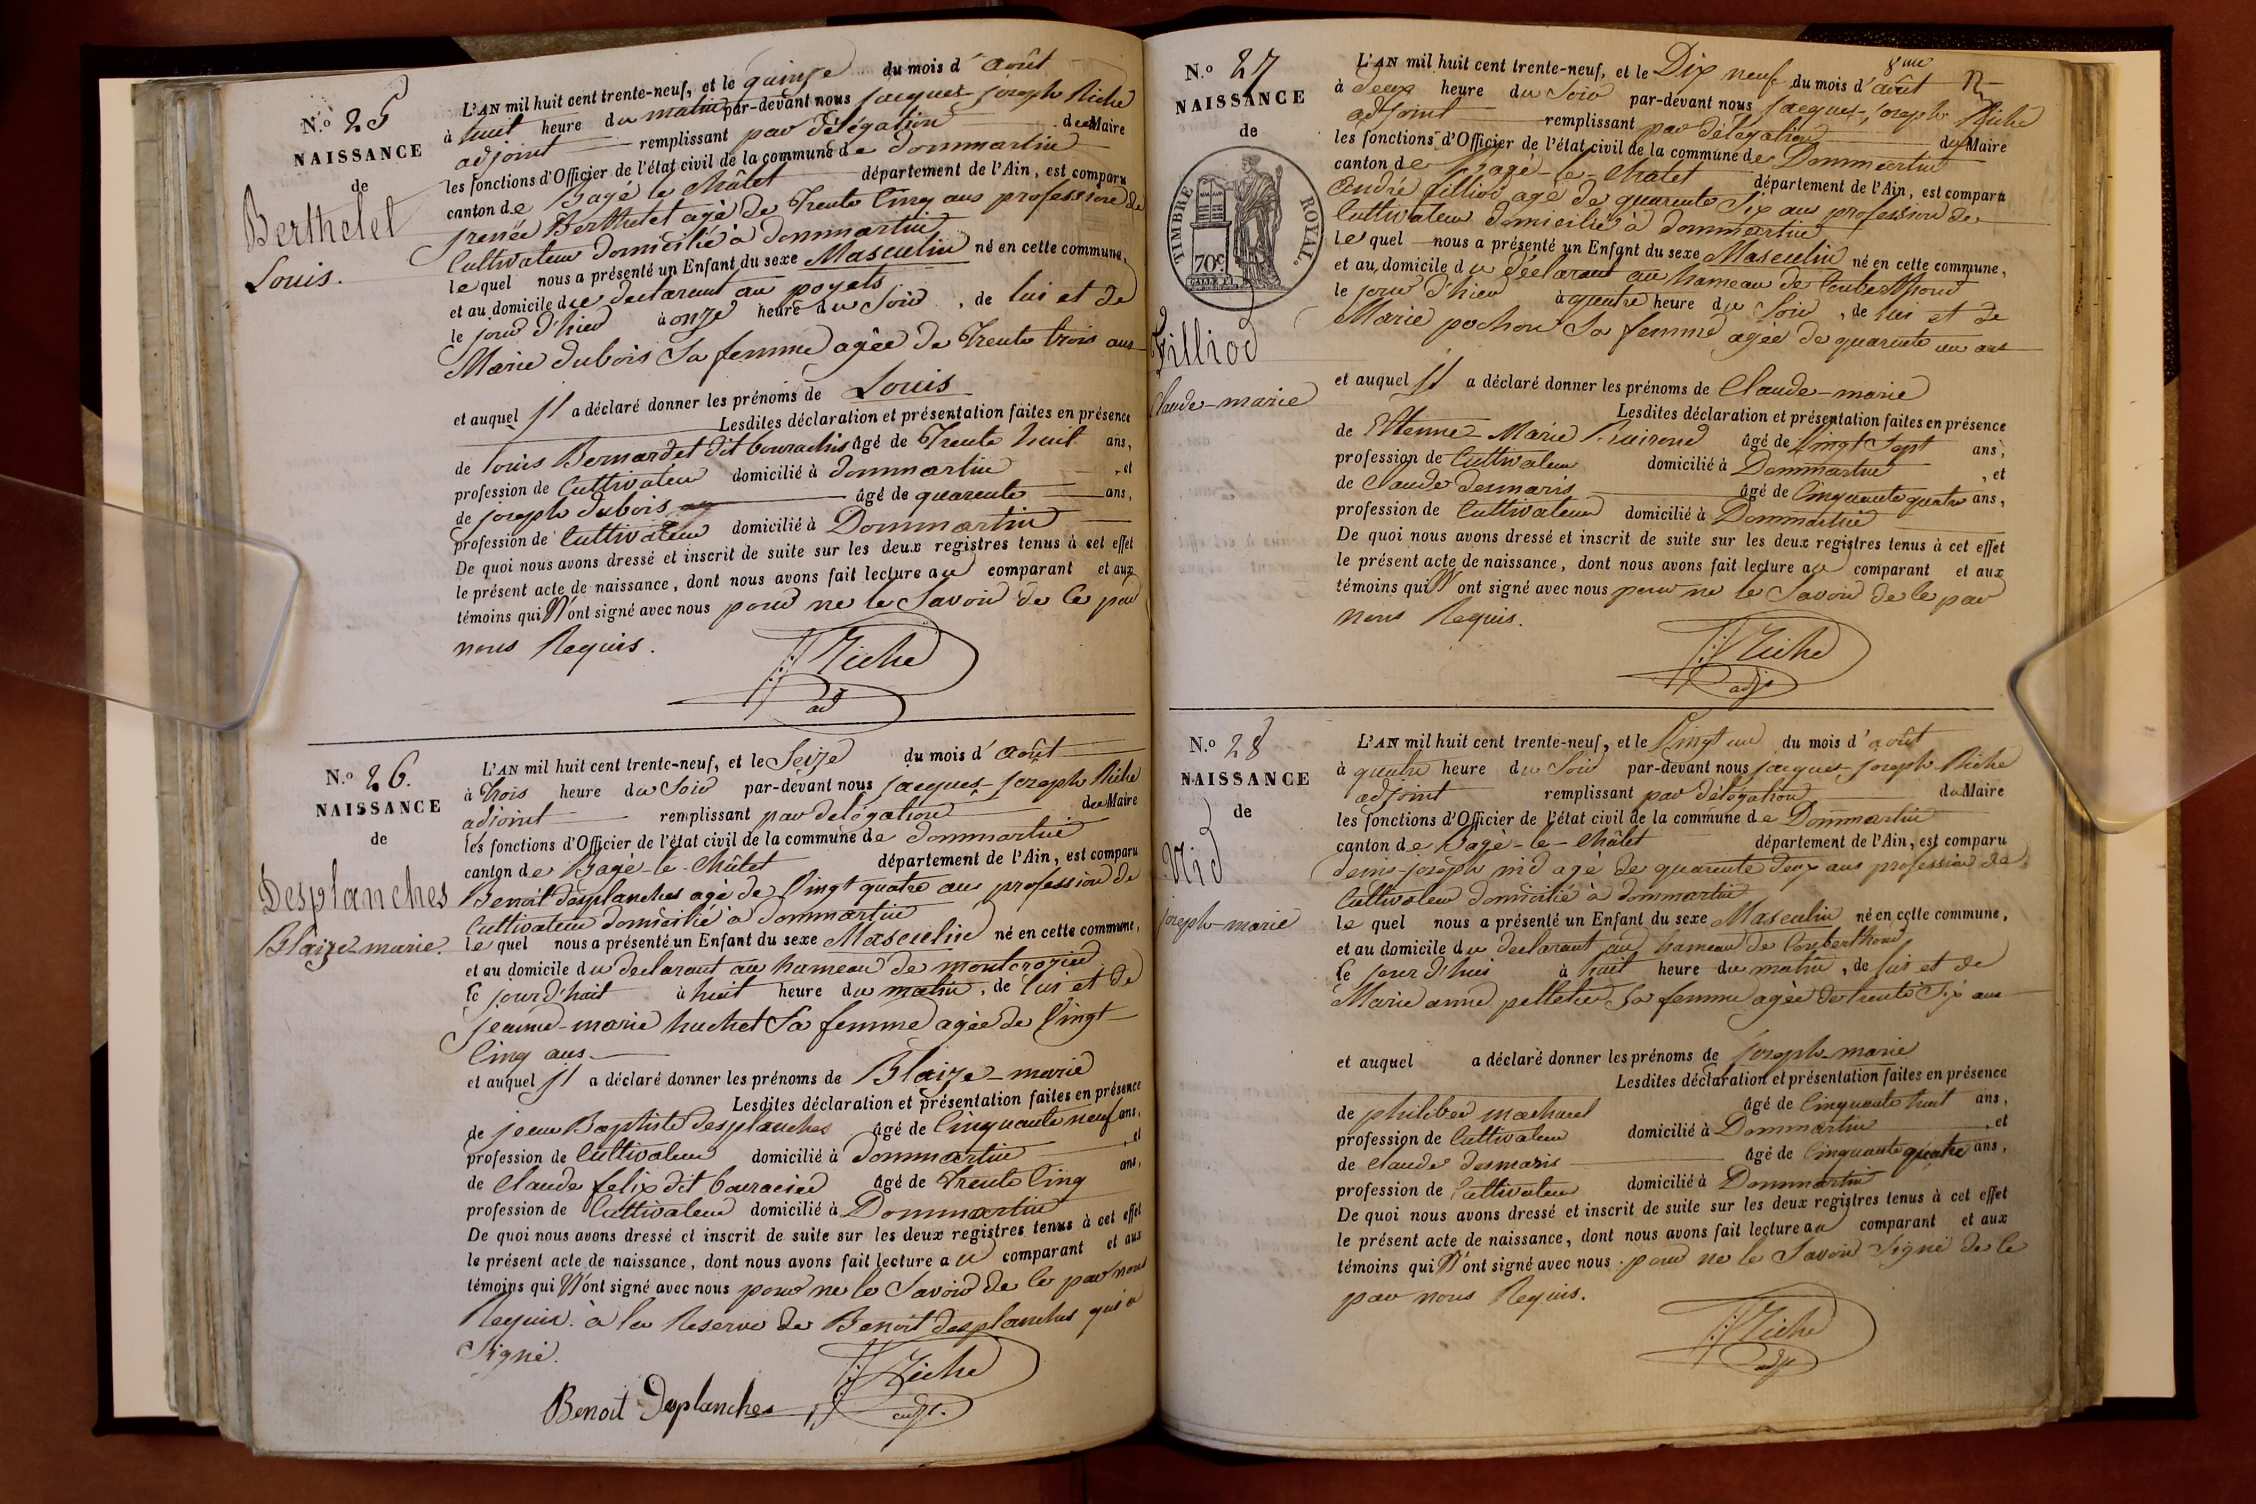 N.º 25
NAISSANCE
de
Berthelet
Louis.
L'AN mil huit cent trente-neuf, et le quinze du mois d'août
à huit heure du matin par-devant nous jacques-joseph Riche
adjoint remplissant par délégation du Maire
les fonctions d'Officier de l'état civil de la commune de dommartin
canton de Bagé le châtel département de l'Ain, est comparu
Berthelet agé de Trente Cinq ans profession de
Cultivateur domicilié à dommartin
lequel nous a présenté un Enfant du sexe Masculin né en cette commune,
et au domicile du declarant au poyets
le jour d'hier à onze heure du Soir, de lui et de
Marie dubois Sa femme agée de Trente trois ans
et auquel Il a déclaré donner les prénoms de Louis
Lesdites déclaration et présentation faites en présence
de Louis Bernardet dit âgé de Trente huit ans,
profession de Cultivateur domicilié à dommartin, et
de joseph dubois âgé de quarente ans,
profession de Cultivateur domicilié à Dommartin
De quoi nous avons dressé et inscrit de suite sur les deux registres tenus à cet effet
le présent acte de naissance, dont nous avons fait lecture au comparant et aux
témoins qui N'ont signé avec nous pour ne le Savoir de Ce par
nous Requis.
Riche
ad
N.º 26.
NAISSANCE
de
Desplanches
Blaize-marie.
L'AN mil huit cent trente-neuf, et le Seize du mois d'août
à trois heure du Soir par-devant nous jacques-joseph Riche
adjoint remplissant par delégation du Maire
les fonctions d'Officier de l'état civil de la commune de dommartin
canton de Bagé-le-Châtel département de l'Ain, est comparu
Benoit desplanches agé de Vingt quatre ans profession de
Cultivateur domicilié à dommartin
lequel nous a présenté un Enfant du sexe Masculin né en cette commune,
et au domicile du declarant au hameau de montcrozier
le jour d'huit à huit heure du matin, de lui et de
jeanne-marie huchet Sa femme agée de Vingt
Cinq ans
et auquel Il a déclaré donner les prénoms de Blaize-marie
Lesdites déclaration et présentation faites en présence
de jean Baptiste desplanches âgé de Cinquante neuf ans,
profession de Cultivateur domicilié à Dommartin, et
de Claude felix dit âgé de Trente Cinq ans,
profession de Cultivateur domicilié à Dommartin
De quoi nous avons dressé et inscrit de suite sur les deux registres tenus à cet effet
le présent acte de naissance, dont nous avons fait lecture au comparant et aux
témoins qui N'ont signé avec nous pour ne le Savoir de Ce par nous
Requis. à la Reserve de Benoit desplanches qui a
Signé.
Riche
Benoit Deplanches adj.
N.º 27
NAISSANCE
de
TIMBRE ROYAL.
70c
FillioD
Claude-marie
8me
L'AN mil huit cent trente-neuf, et le Dix neuf du mois d'août
à deux heure du Soir par-devant nous jacques-joseph Riche
adjoint remplissant par délégation du Maire
les fonctions d'Officier de l'état civil de la commune de Dommartin
canton de Bagé-le-Chatel département de l'Ain, est comparu
André fillioD agé de quarente Six ans profession de
Cultivateur domicilié à dommartin
lequel nous a présenté un Enfant du sexe Masculin né en cette commune,
et au domicile du déclarant au hameau de Louberthoud
le jour d'hier à quatre heure du Soir, de lui et de
Marie pochon Sa femme agée de quarente un ans
et auquel Il a déclaré donner les prénoms de Claude-marie
Lesdites déclaration et présentation faites en présence
de Etienne-Marie âgé de Vingt Sept ans,
profession de Cultivateur domicilié à Dommartin, et
de Claude desmaris âgé de Cinquante quatre ans,
profession de Cultivateur domicilié à Dommartin
De quoi nous avons dressé et inscrit de suite sur les deux registres tenus à cet effet
le présent acte de naissance, dont nous avons fait lecture au comparant et aux
témoins qui N'ont signé avec nous pour ne le Savoir de Ce par
nous Requis.
Riche
adj
N.º 28
NAISSANCE
de
NiD
joseph-marie
L'AN mil huit cent trente-neuf, et le Vingt un du mois d'août
à quatre heure du Soir par-devant nous jacques-joseph Riche
adjoint remplissant par délégation du Maire
les fonctions d'Officier de l'état civil de la commune de Dommartin
canton de Bagé-le-Châtel département de l'Ain, est comparu
denis-joseph niD agé de quarente deux ans profession de
Cultivateur domicilié à dommartin
lequel nous a présenté un Enfant du sexe Masculin né en cette commune,
et au domicile du declarant au hameau de Louberthoud
le jour d'hui à huit heure du matin, de lui et de
Marie anne pelletier Sa femme agée de trente Six ans
et auquel a déclaré donner les prénoms de joseph-marie
Lesdites déclaration et présentation faites en présence
de philiber machurel âgé de Cinquante huit ans,
profession de Cultivateur domicilié à Dommartin, et
de Claude desmaris âgé de Cinquante quatre ans,
profession de Cultivateur domicilié à Dommartin
De quoi nous avons dressé et inscrit de suite sur les deux registres tenus à cet effet
le présent acte de naissance, dont nous avons fait lecture au comparant et aux
témoins qui N'ont signé avec nous pour ne le Savoir Signé de Ce
par nous Requis.
Riche
adj